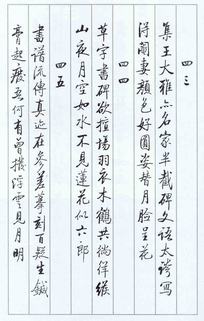 四三
集王大雅亦名家半截碑文語太誇寫
得闍妻顏色好圓姿替月臉呈花
四四
草字書碑欲擅場羽衣木鶴共徜徉緱
山夜月空如水不見蓮花似六郎
四五
書譜流傳真迹在參差摹刻百疑生鍼
膏起癈吾何有曾撥浮雲見月明